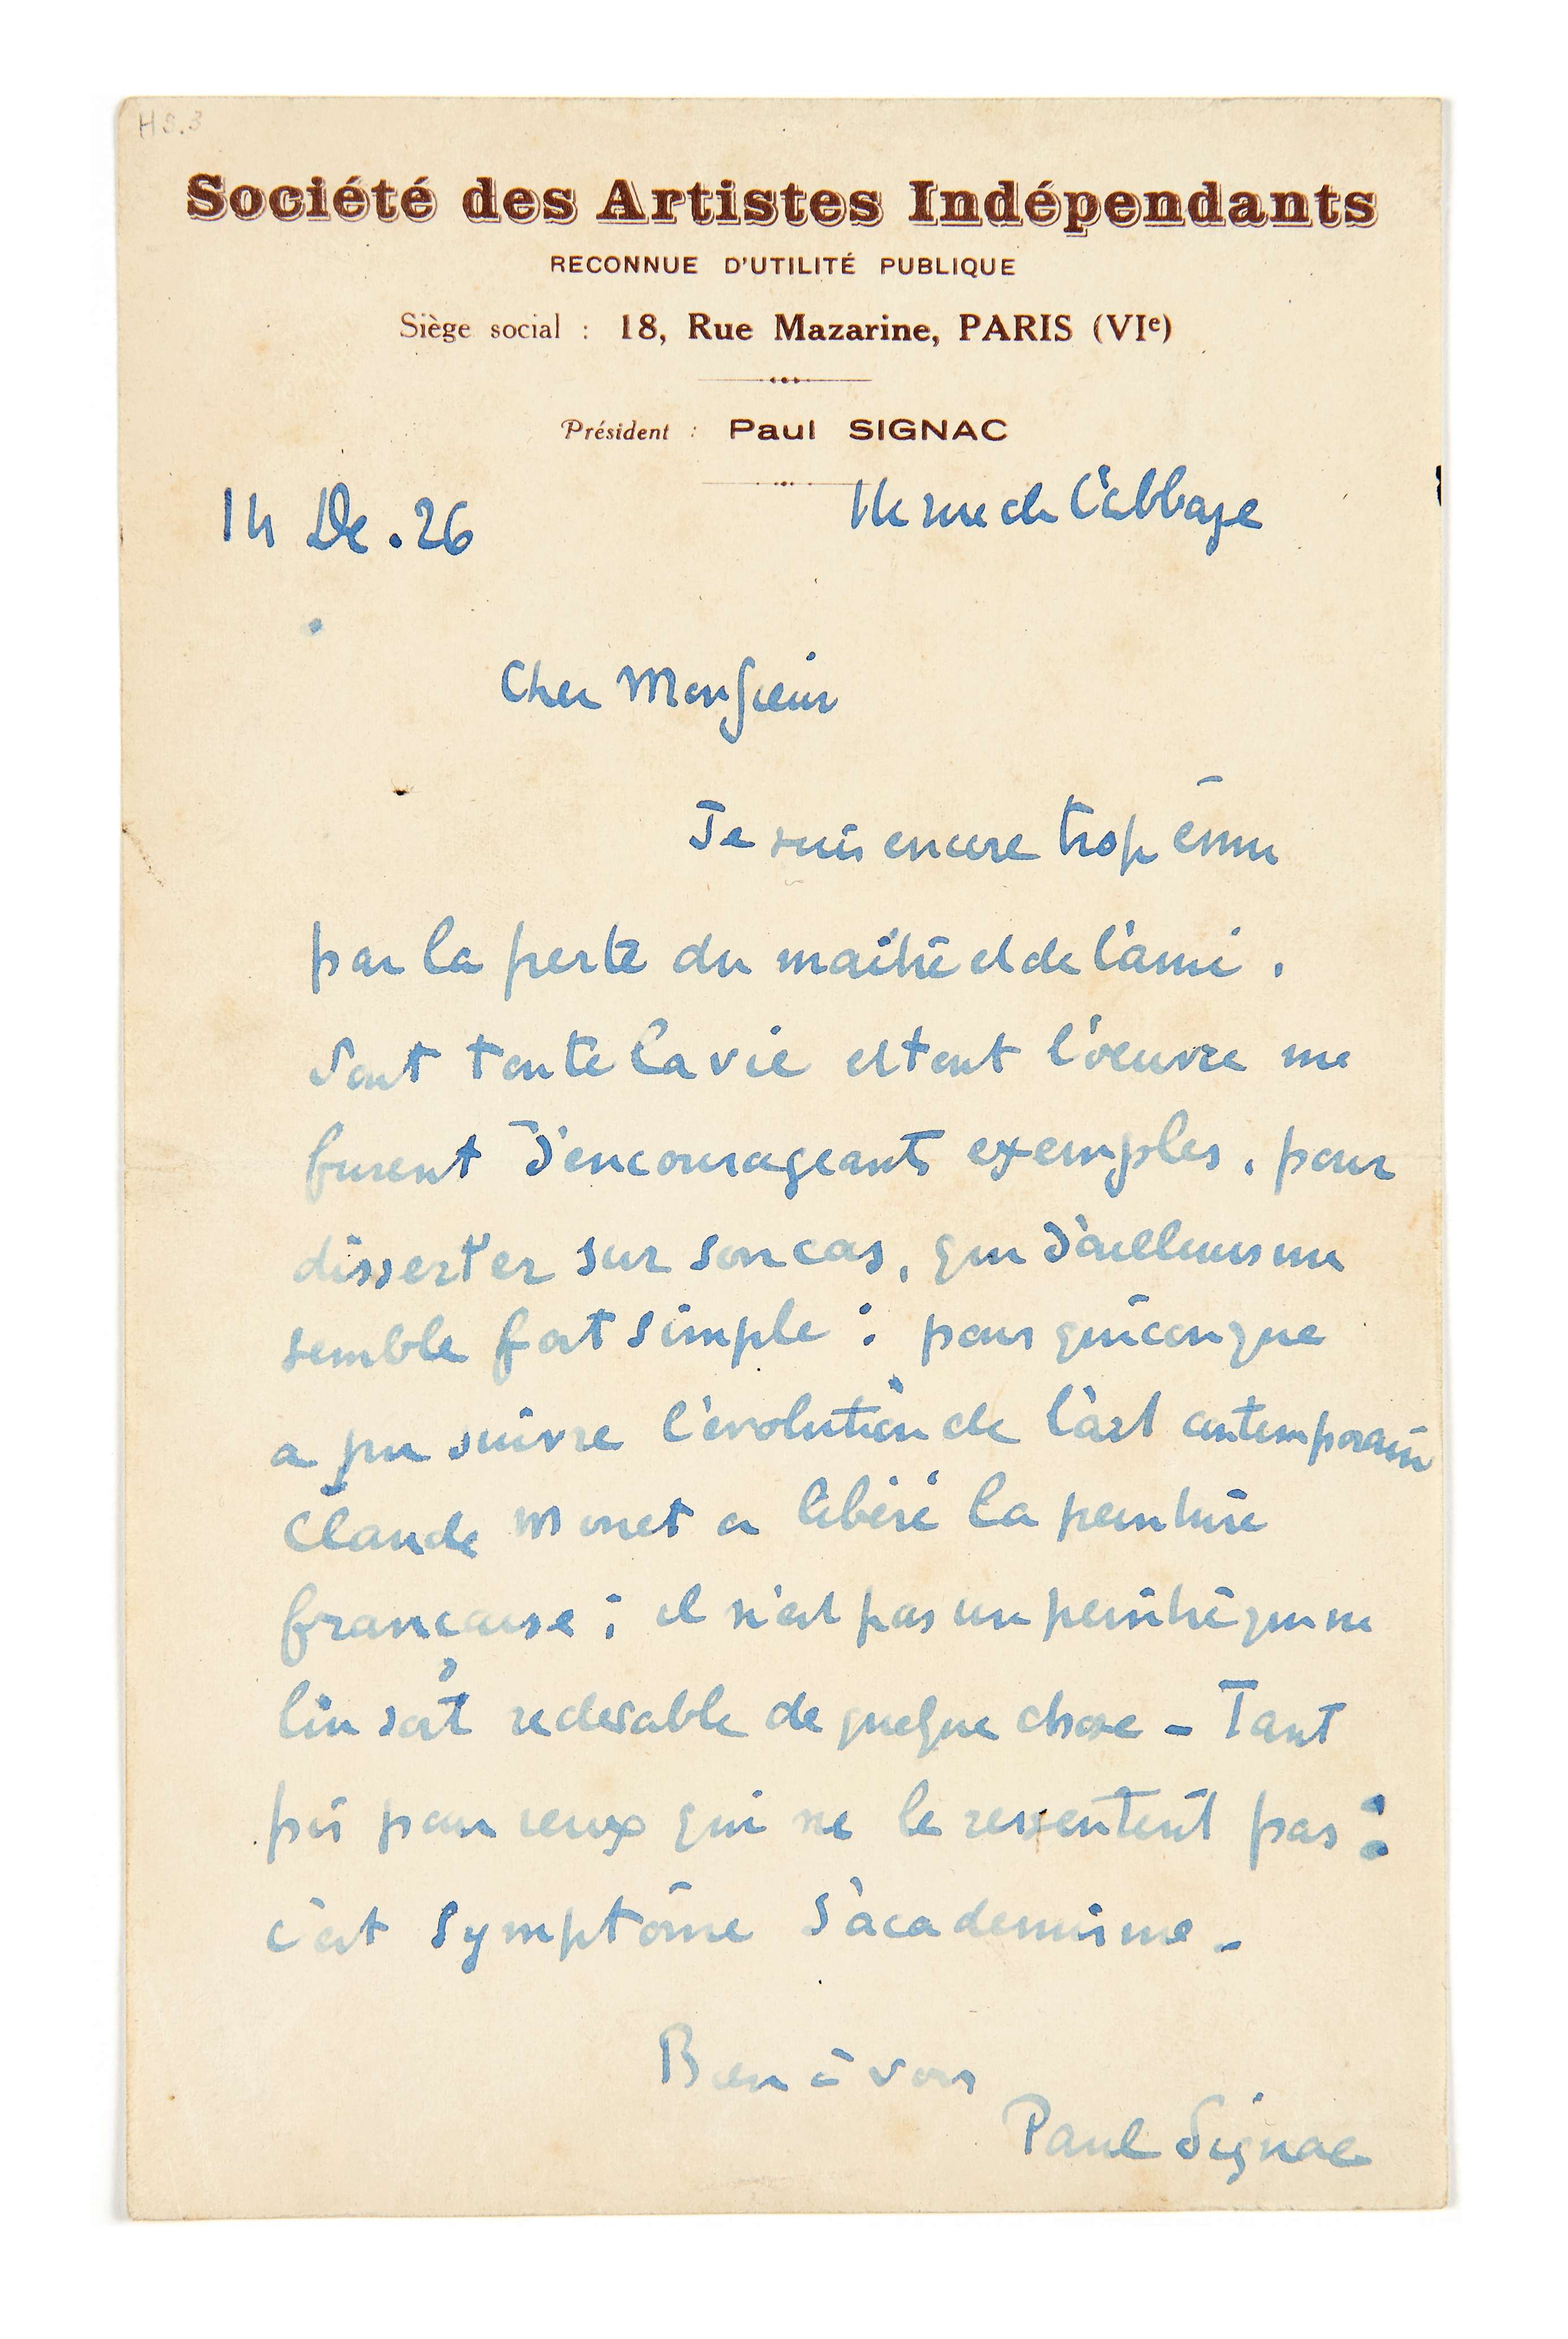 HS.3
Société des Artistes Indépendants
RECONNUE D'UTILITÉ PUBLIQUE
Siège social : 18, Rue Mazarine, PARIS (VIe)
Président : Paul SIGNAC
14 De .26 14 rue de l'abbaye
Cher Monsieur
Je suis encore trop ému
par la perte du maître et de l'ami,
dont toute la vie et tout l'œuvre me
furent d'encourageants exemples, pour
disserter sur son cas, qui d'ailleurs me
semble fort simple : pour quiconque
a pu suivre l'évolution de l'art contemporain
Claude Monet a libéré la peinture
française ; il n'est pas un peintre qui ne
lui soit redevable de quelque chose - Tant
pis pour ceux qui ne le ressentent pas :
c'est symptôme d'académisme -
Bien à vous
Paul Signac